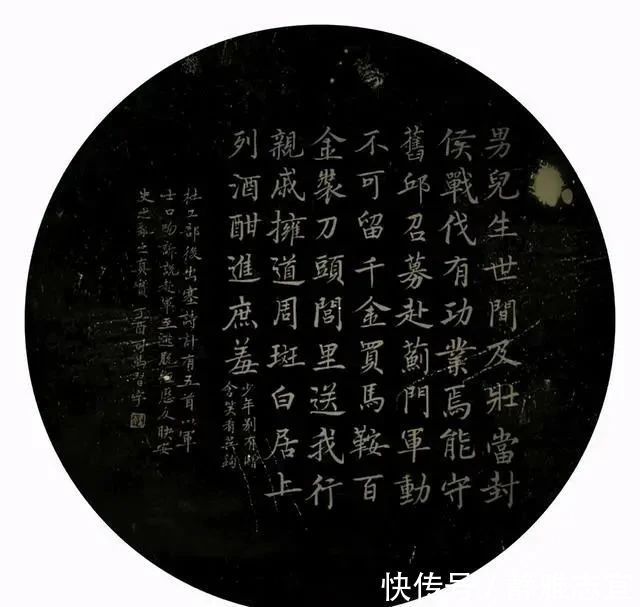 男兒生世間及壯當封
侯戰伐有功業焉能守
舊邱召募赴薊門軍動
不可留千金買馬鞍百
金裝刀頭閭里送我行
親戚擁道周斑白居上
列酒酣進庶羞
少年別有贈
含笑看吳鉤
杜工部後出塞詩計有五首以軍
士口吻訴說赴軍至逃脫經歷反映安
史之亂之真實 丁酉
快传号 /